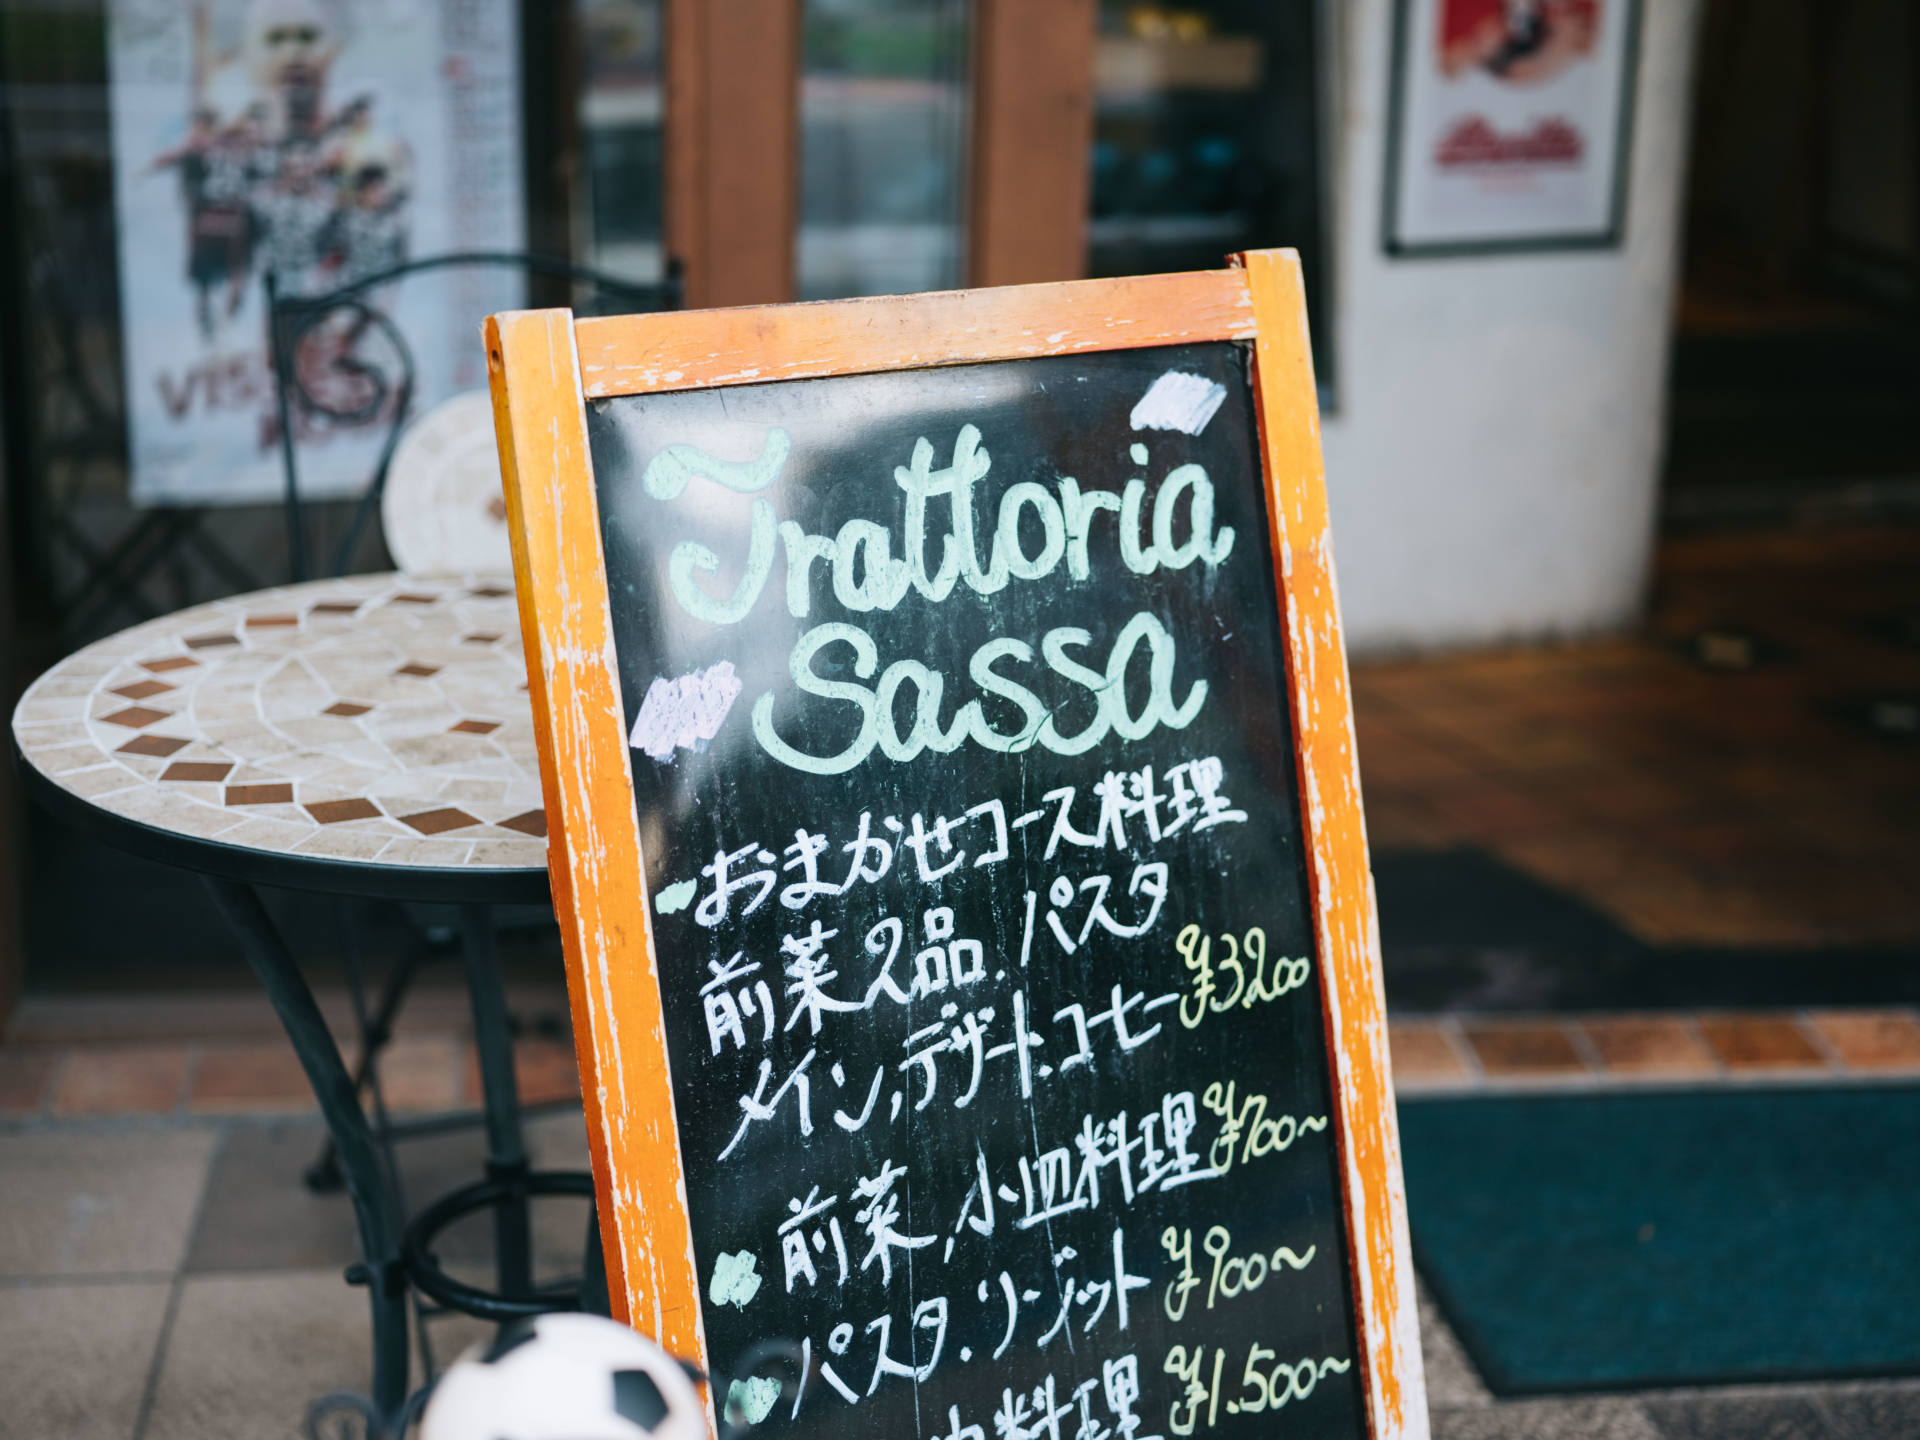 Trattoria
Sassa
おまかせコース料理
前菜2品.パスタ
メイン,デザート.コーヒー ¥3.200
前菜,小皿料理 ¥700~
パスタ.リゾット ¥900~
料理 ¥1.500~